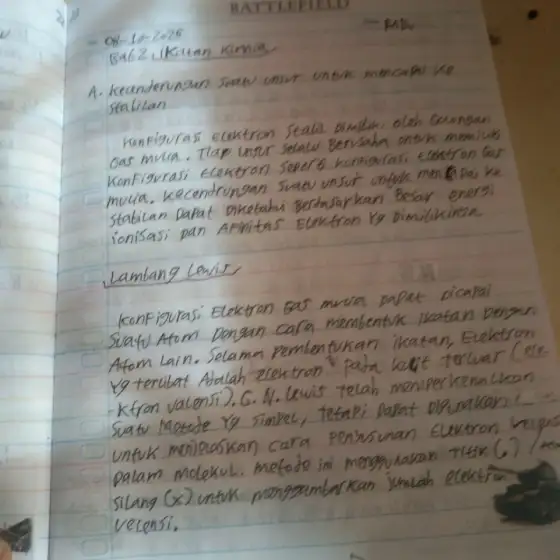 BATTLEFIELD
08-10-2025
Bab 2. Ikatan Kimia
A. Kecenderungan Suatu unsur untuk mencapai Ke
stabilan
Konfiguras Elektron Stabil Dimiliki oleh Golongan
Gas mulia. Tiap unsur selalu Berusaha untuk memiliki
Konfigurasi Elektron seperti konfigurasi Elektron Gas
mulia. Kecendrungan Suatu unsur untuk mencapai Ke
stabilan Dapat Diketahui Berdasarkan Besar energi
ionisasi Dan Afinitas Elektron Yg Dimilikinya
Lambang Lewis
Konfigurasi Elektron Gas mulia Dapat Dicapai
Suatu Atom Dengan Cara membentuk Ikatan Dengan
Atom Lain. Selama Pembentukan ikatan, Elektron
Yg terlibat Adalah elektron pada kulit terluar (ele
-ktron valensi). G. N. Lewis Telah memperkenalkan
Suatu Metode Yg Simpel, tetapi Dapat Digunakan
untuk menjelaskan cara Penyusunan Elektron
Dalam molekul. metode ini menggunakan Titik (.) /
Silang (x) untuk menggambarkan jumlah elektron
velensi.